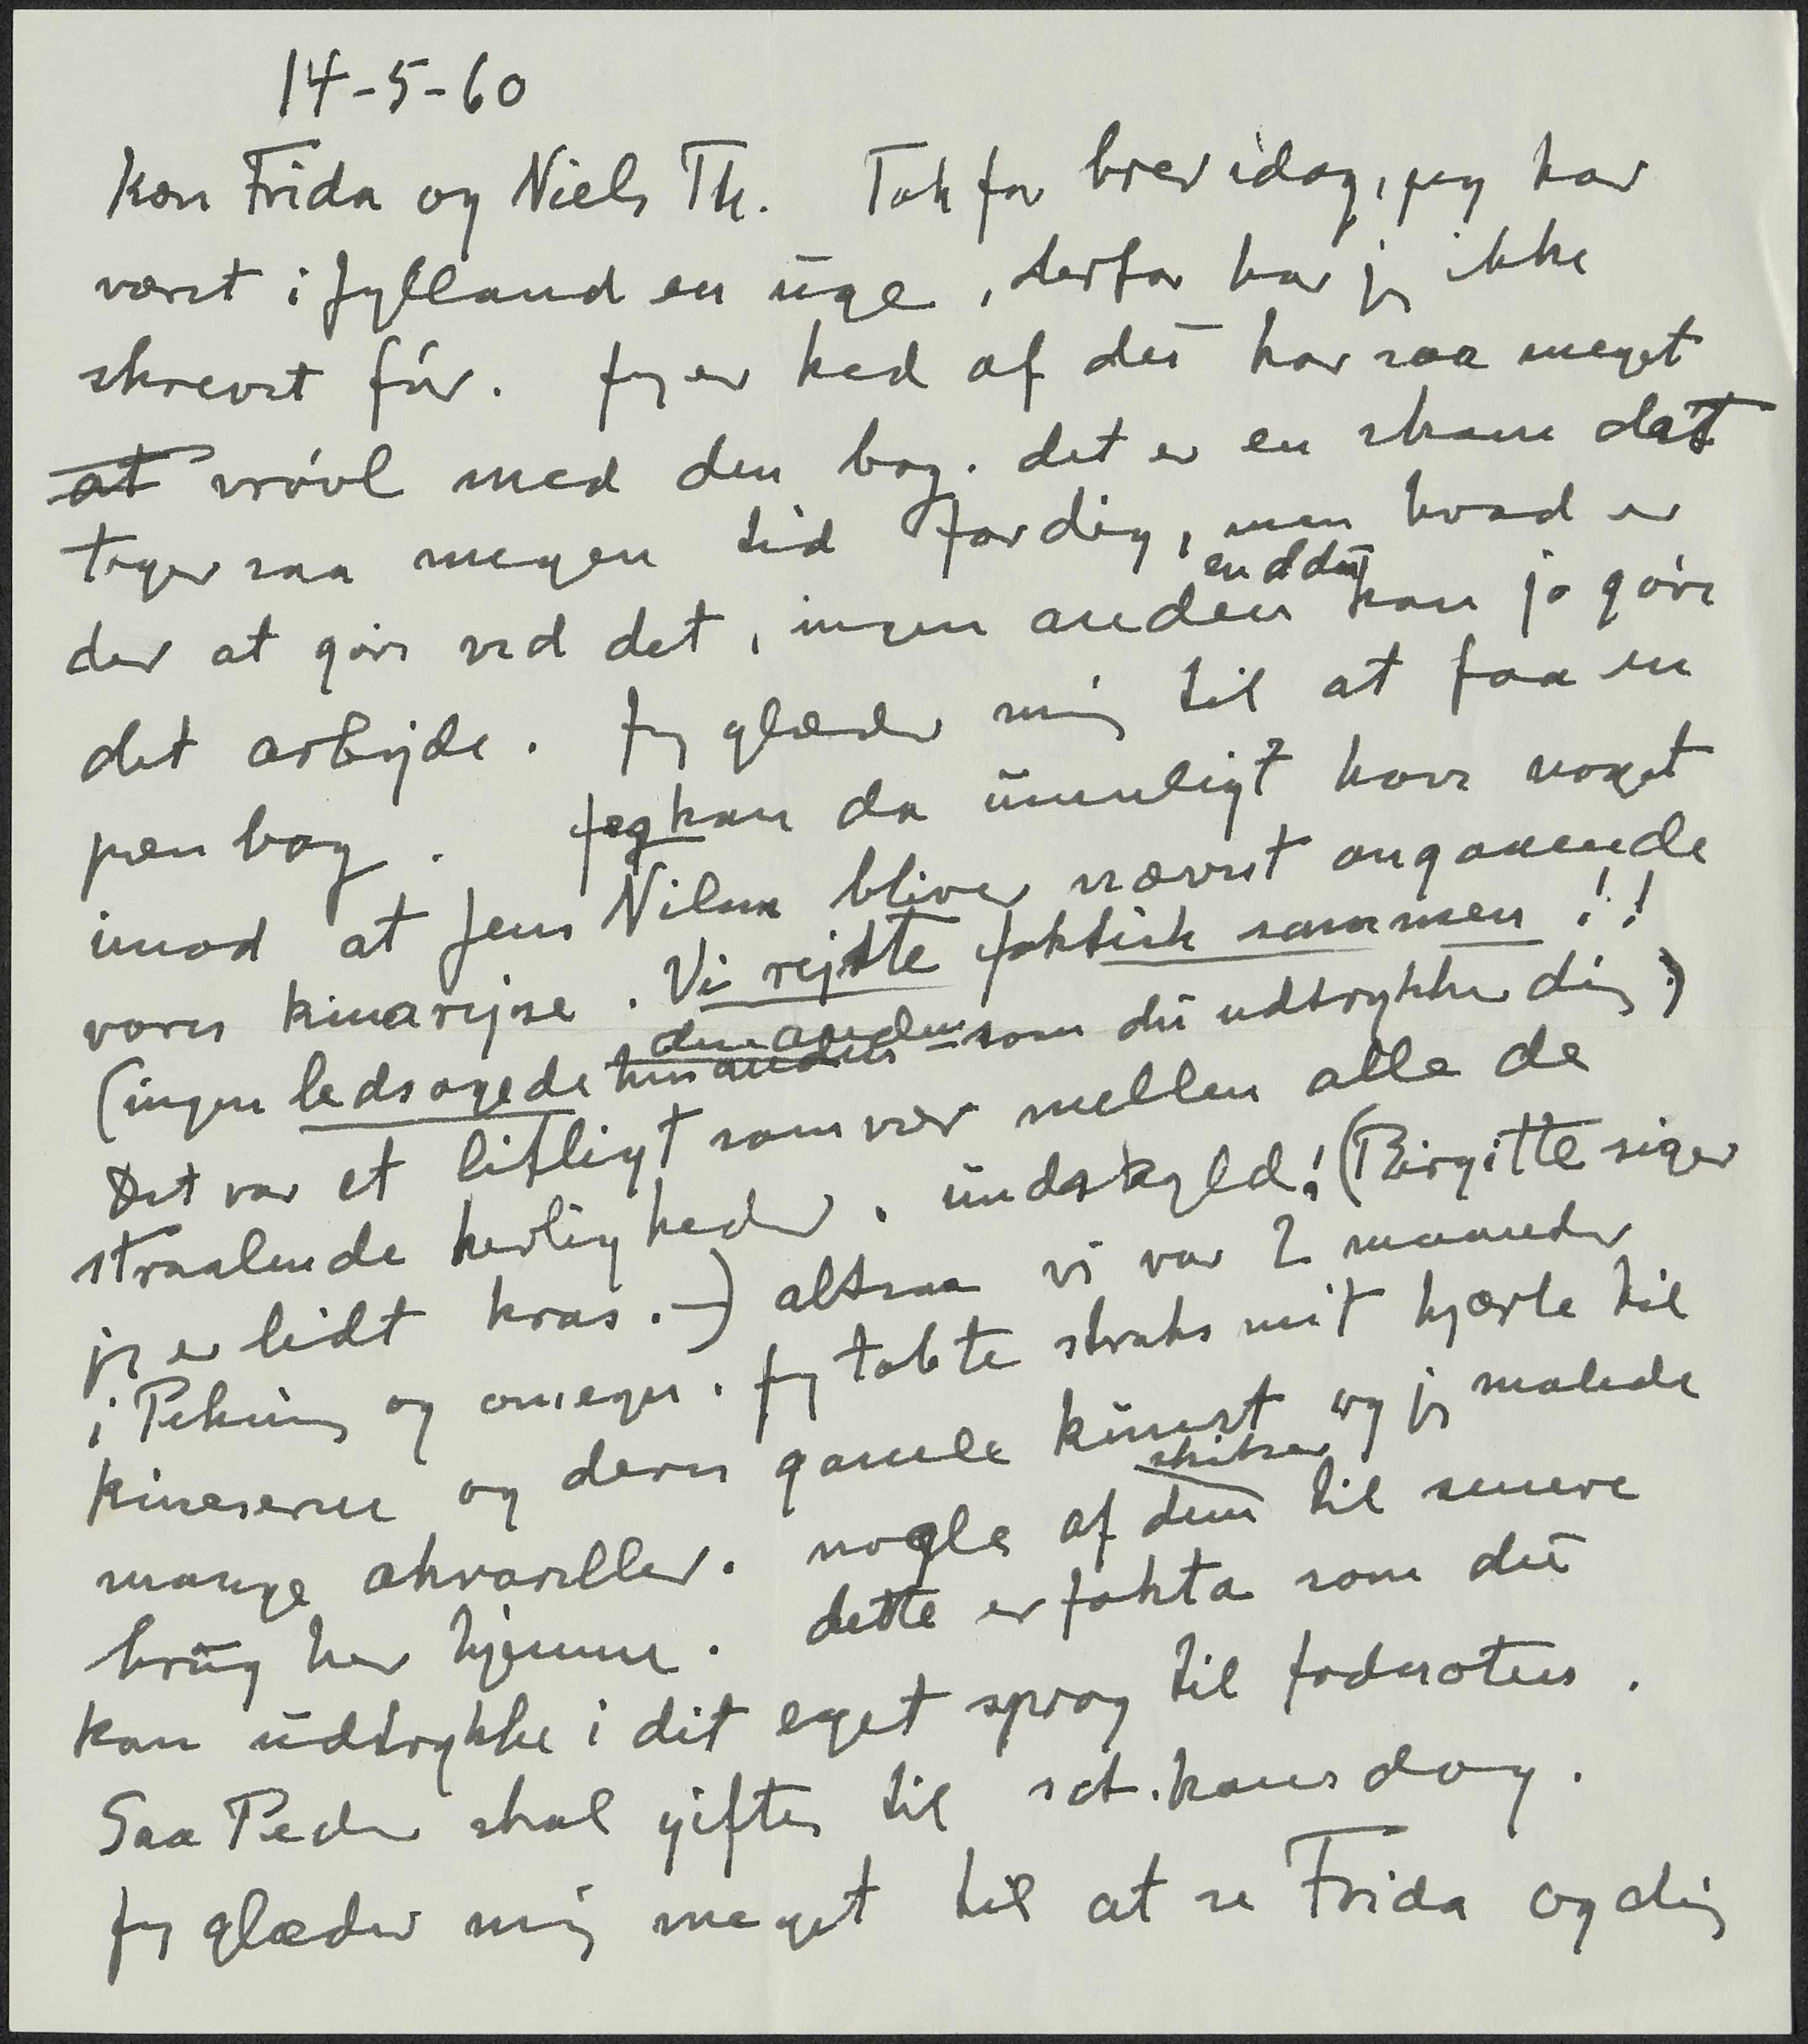 14-5-60
Kære Frida og Niels Th. Tak for brev idag, jeg har
været i Jylland en uge, derfor har jeg ikke
skrevet før. Jeg er ked af du har saa meget
at vrøvl med den bog. det er en skam det
tager saa megen tid for dig, men hvad er
der at gøre ved det, ingen anden end du kan jo gøre
det arbejde. Jeg glæder mig til at faa en
pæn bog. Jeg kan da umuligt have noget
imod at Jens Nilson bliver nævnt angaaende
vores kinarejse. Vi rejste faktisk sammen!!
(ingen ledsagede den anden som du udtrykker dig)
Det var et lifligt samvær mellem alle de
straalende herligheder. undskyld! (Birgitte siger
jeg er lidt kras.-) altsaa vi var 2 maaneder
i Peking og omegn. Jeg tabte straks mit hjærte til
kineserne og deres gamle kunst og jeg malede
mange akvareller. nogle af dem skitser til senere
brug her hjemme. dette er fakta som du
kan udtrykke i dit eget sprog til fodnoten.
Saa Peder skal giftes til sct. hansdag.
Jeg glæder mig meget til at se Frida og dig